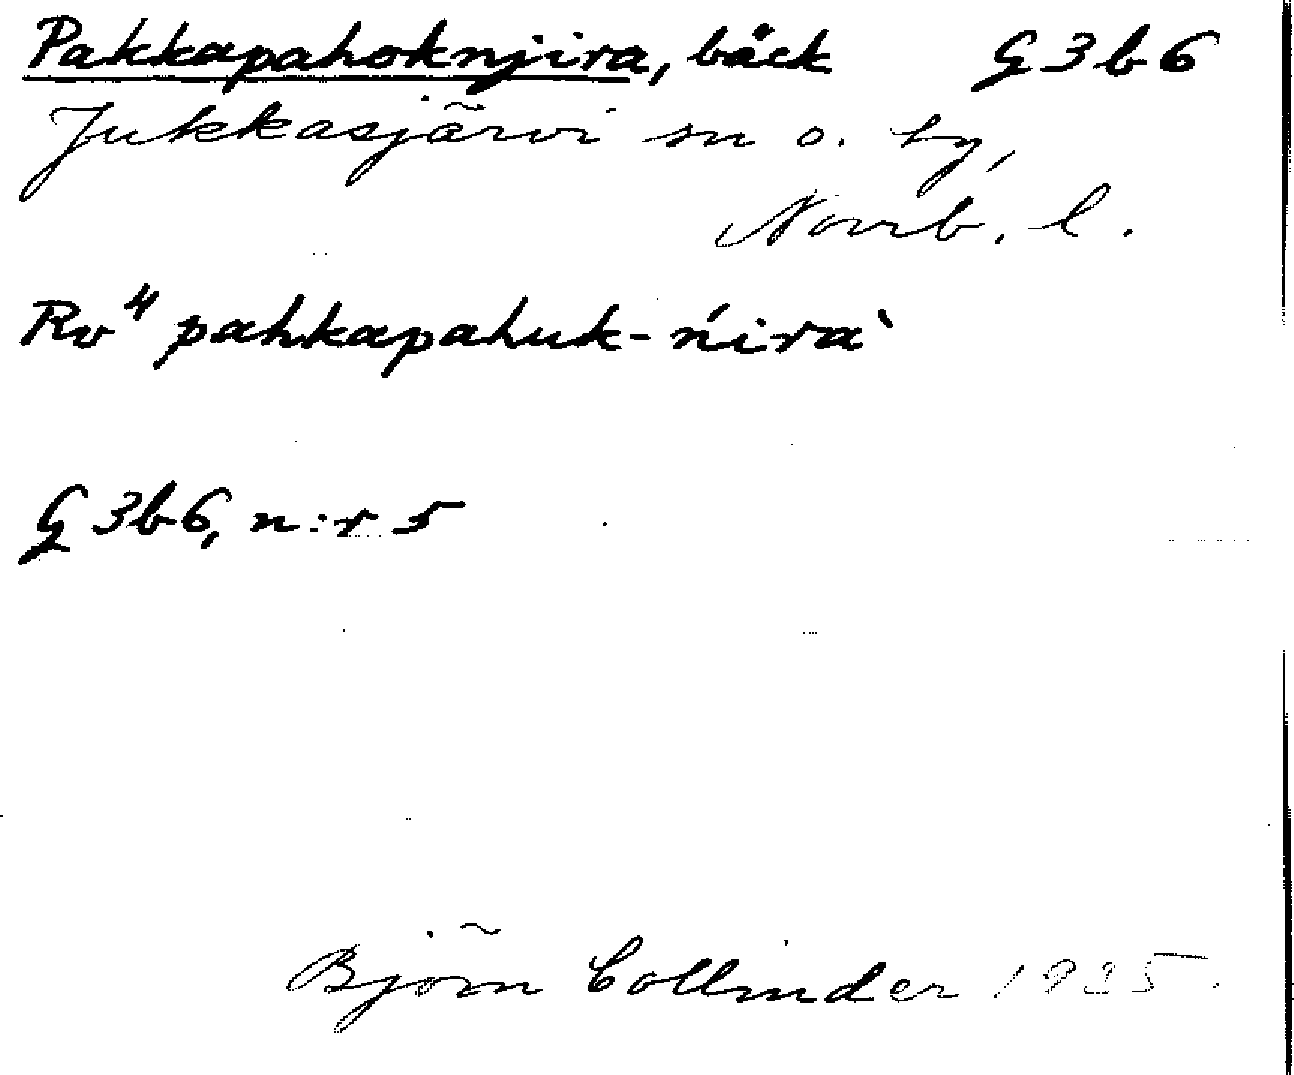 Pakkapahoknjira, bäck G3b6
Jukkasjärvi sn o. by,
Norrb. l.
Rv⁴ pahkapahuk-ńira`
G3b6, n:r 5
Björn Collinder 1935.